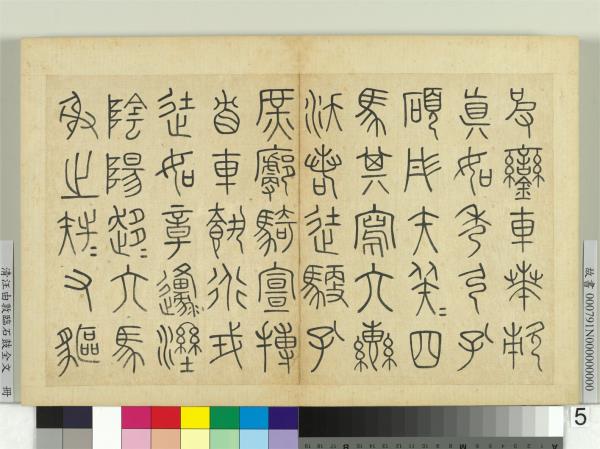 故書 000791N000000000
鑾車𠦪敕
真如秀弓孔
碩彤矢四
馬其寫六轡
沃若徒馭孔
庶廓騎宣搏
眚車行戎
徒如章邍隰
陰陽趍〻六馬
射之〻又貙
清汪由敦臨石鼓全文 冊
5